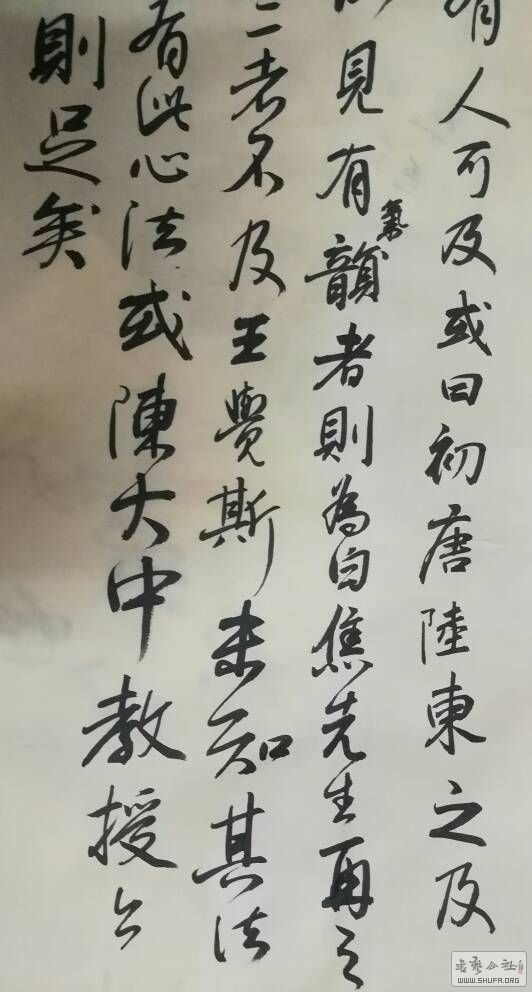 有人可及或曰初唐陸東之及
見有韻氣者則為白焦先生再之
二者不及王覺斯未知其法
有此心法或陳大中教授公
則足矣
书艺公社
WWW.SHUFA.ORG